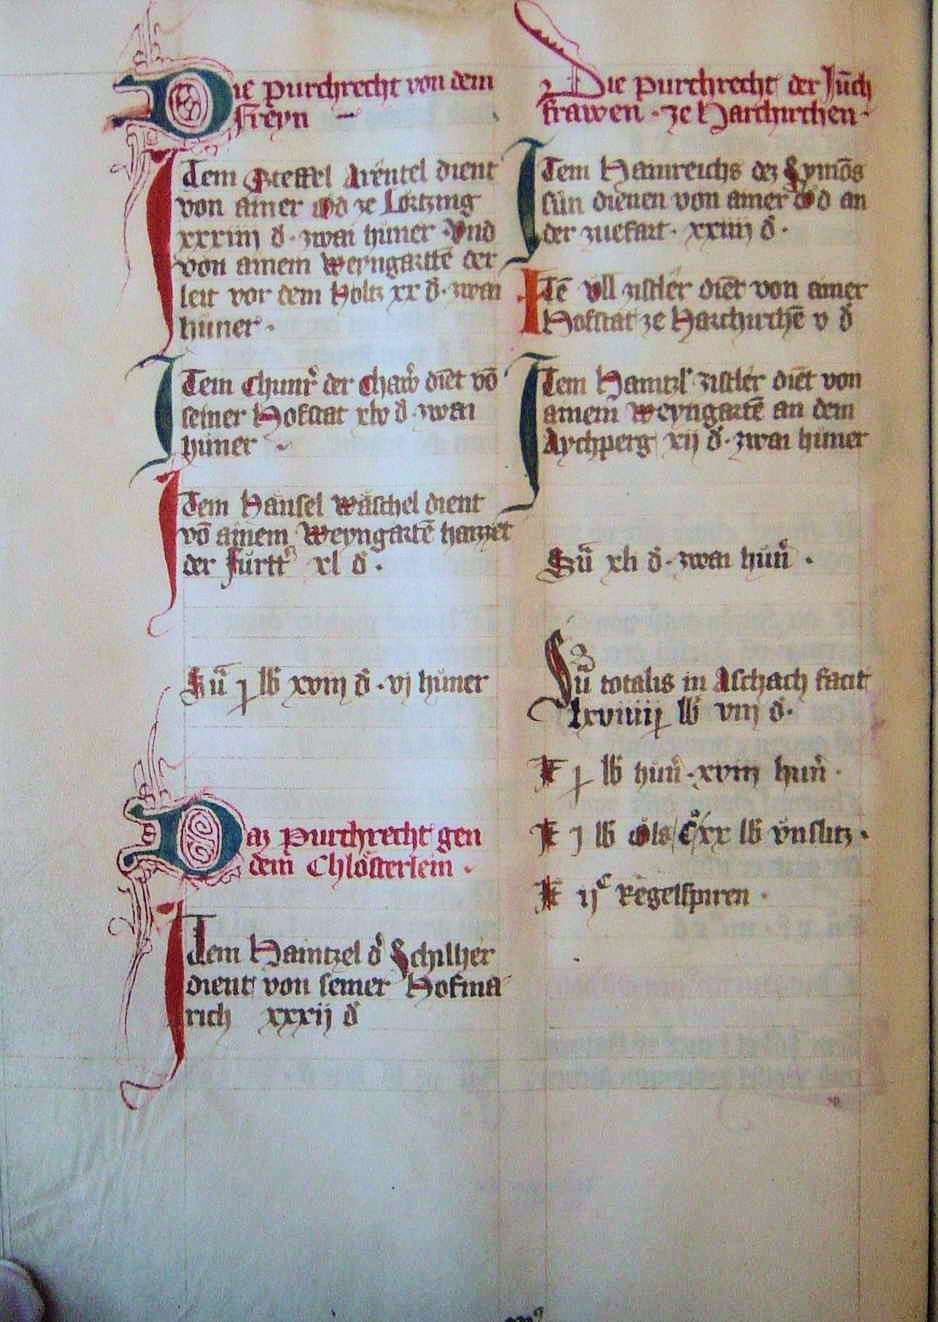 Die purchrecht von dem
Freyn
Item Steffel dient
von ainer öd ze
xxxiiij d · zwai hüner · Vnd
von ainem Weyngartē der
leit vor dem Holtz xx d · zwai
hüner ·
Item Chunr̄ der diēt vō
seiner Hofstat xlv d · zwai
hüner
Item Hänsel Wäschel dient
vō ainem Weyngartē haizzet
der xl d ·
Sūa j lb xviij d · vj hüner
Daz purchrecht gen
dem Chlösterlein ·
Item Haintzel d Schilher
dient von seiner Hofma
rich xxxij d
Die purchrecht der Jūch
frawen · ze Harchirchen ·
Item Hainreichs dez Symōs
sün dienen von ainer öd an
der zuefart · xxiiij d ·
Itē Vll zistler diēt von ainer
Hofstat ze Harchirchē v d
Item Haintzl zistler diēt von
ainem Weyngartē an dem
Aychperg xij d · zwai hüner
Sūa xli d · zwai hün ·
Sūa totalis in Aschach facit
lb viij d ·
lb hün · xviij hün ·
j lb öls xx lb vnslitz ·
ijᶜ Regelspiren ·